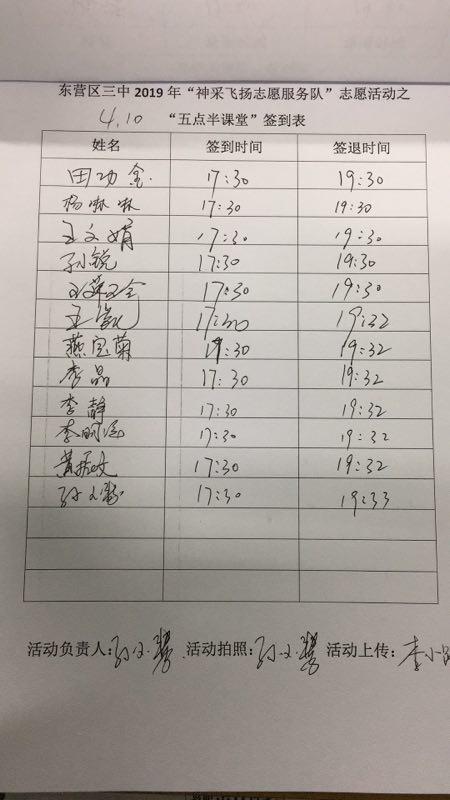 东营区三中 2019 年“神采飞扬志愿服务队”志愿活动之
4.10 “五点半课堂”签到表
姓名 签到时间 签退时间
田功金 17:30 19:30
杨琳琳 17:30 19:30
王文娟 17:30 19:30
孙锐 17:30 19:30
17:30 19:30
王 17:30 19:32
燕宝菊 19:30 19:32
李晶 17:30 19:32
李静 17:30 19:32
李 17:30 19:32
黄 17:30 19:32
孙文 17:30 19:33
活动负责人:孙文 活动拍照:孙文 活动上传:李小